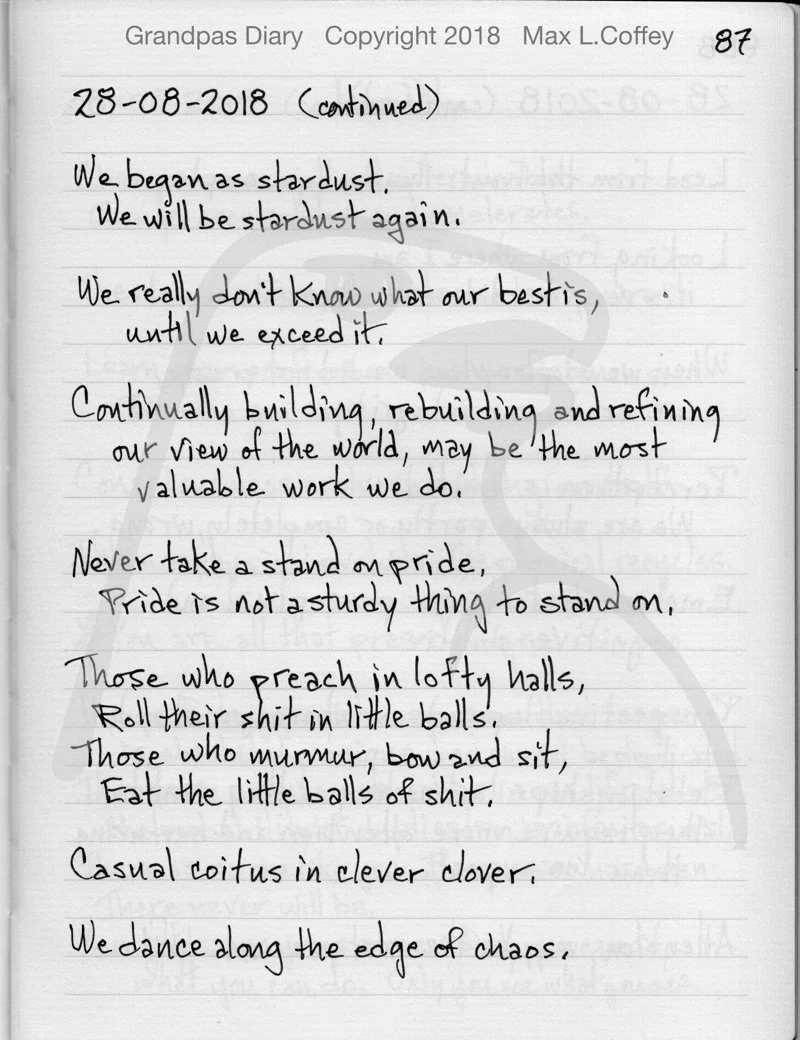 Grandpas Diary Copyright 2018 Max L.Coffey
87
28-08-2018 (continued)
We began as stardust.
We will be stardust again.
We really don't know what our best is,
until we exceed it.
Continually building, rebuilding and refining
our view of the world, may be the most
valuable work we do.
Never take a stand on pride,
Pride is not a sturdy thing to stand on.
Those who preach in lofty halls,
Roll their shit in little balls.
Those who murmur, bow and sit,
Eat the little balls of shit.
Casual coitus in clever clover.
We dance along the edge of chaos.